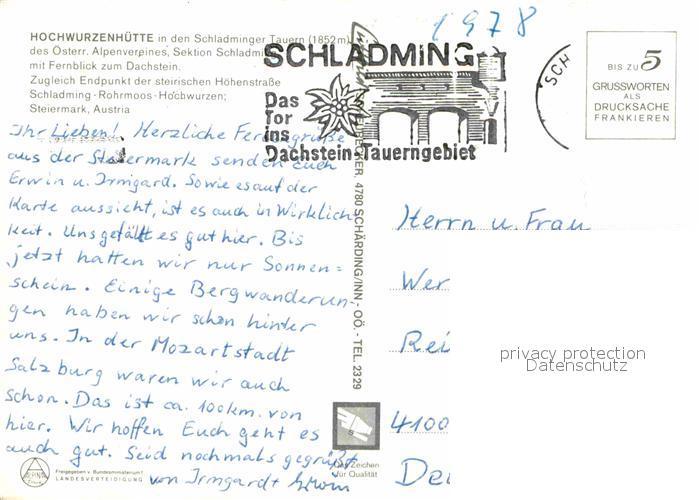 1978
HOCHWURZENHÜTTE in den Schladminger Tauern (1852 m)
des Österr. Alpenvereines, Sektion Schladming
mit Fernblick zum Dachstein.
Zugleich Endpunkt der steirischen Höhenstraße
Schladming - Rohrmoos - Hochwurzen;
Steiermark, Austria
SCHLADMING
Das
Tor
ins
Dachstein-Tauerngebiet
SCH
BIS ZU 5
GRUSSWORTEN
ALS
DRUCKSACHE
FRANKIEREN
Ihr Lieben! Herzliche Feriengrüße
aus der Steiermark senden Euch
Erwin u. Irmgard. Sowie es auf der
Karte aussieht, ist es auch in Wirklich
keit. Uns gefällt es gut hier. Bis
jetzt hatten wir nur Sonnen=
schein. Einige Bergwanderun-
gen haben wir schon hinter
uns. In der Mozartstadt
Salzburg waren wir auch
schon. Das ist ca. 100 km. von
hier. Wir hoffen Euch geht es
auch gut. Seid nochmals gegrüßt
von Irmgardt Erwin
DECKER, 4780 SCHÄRDING/INN - OÖ. - TEL. 2329
Herrn u. Frau
Wer
Rei
4100
privacy protection
Datenschutz
Das Zeichen
für Qualität
Freigegeben v. Bundesministerium f.
LANDESVERTEIDIGUNG